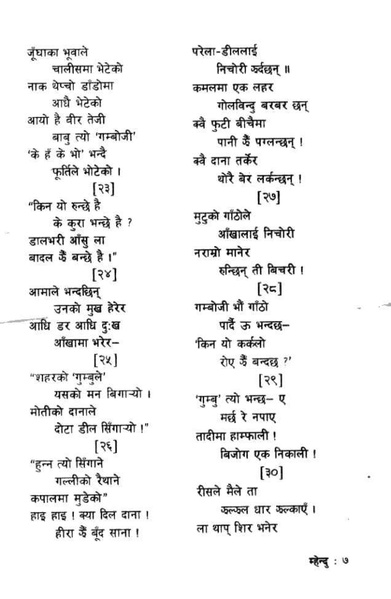 जूँघाका भूवाले
चालीसमा भेटेको
नाक थेप्चो डाँडोमा
आधै भेटेको
आयो है वीर तेजी
बाबु त्यो 'गम्बोजी'
'के हँ के भो' भन्दै
फूर्तिले भोटेको ।
[२३]
"किन यो रुन्छे है
के कुरा भन्छे है ?
डालभरी आँसु ला
बादल झैं बन्छे है !"
[२४]
आमाले भन्दछिन्
उनको मुख हेरेर
आधि डर आधि दुःख
आँखामा भरेर–
[२५]
"शहरको 'गुम्बुले'
यसको मन बिगार्‍यो ।
मोतीको दानाले
दोटा डील सिँगार्‍यो !"
[२६]
"हुन्न त्यो सिँगाने
गल्लीको रैथाने
कपालमा मुडेको"
हाइ हाइ ! क्या दिल दाना !
हीरा झैं बूँद साना !
परेला-डीललाई
निचोरी झर्दछन् ॥
कमलमा एक लहर
गोलविन्दु बरबर छन्
क्वै फुटी बीचैमा
पानी झैं पग्लन्छन् !
क्वै दाना तर्केर
थोरै बेर लर्कन्छन् !
[२७]
मुटुको गाँठोले
आँखालाई निचोरी
नराम्रो मानेर
रुन्छिन् ती बिचरी !
[२८]
गम्बोजी भौं गाँठो
पार्दै ऊ भन्दछ–
'किन यो कर्कलो
रोए झैं बन्दछ ?'
[२९]
'गुम्बु' त्यो भन्छ– ए
मर्छ रे नपाए
तादीमा हाम्फाली !
बिजोग एक निकाली !
[३०]
रीसले मैले ता
झल्झल धार झल्काएँ ।
ला थाप् शिर भनेर
म्हेन्दु : ७